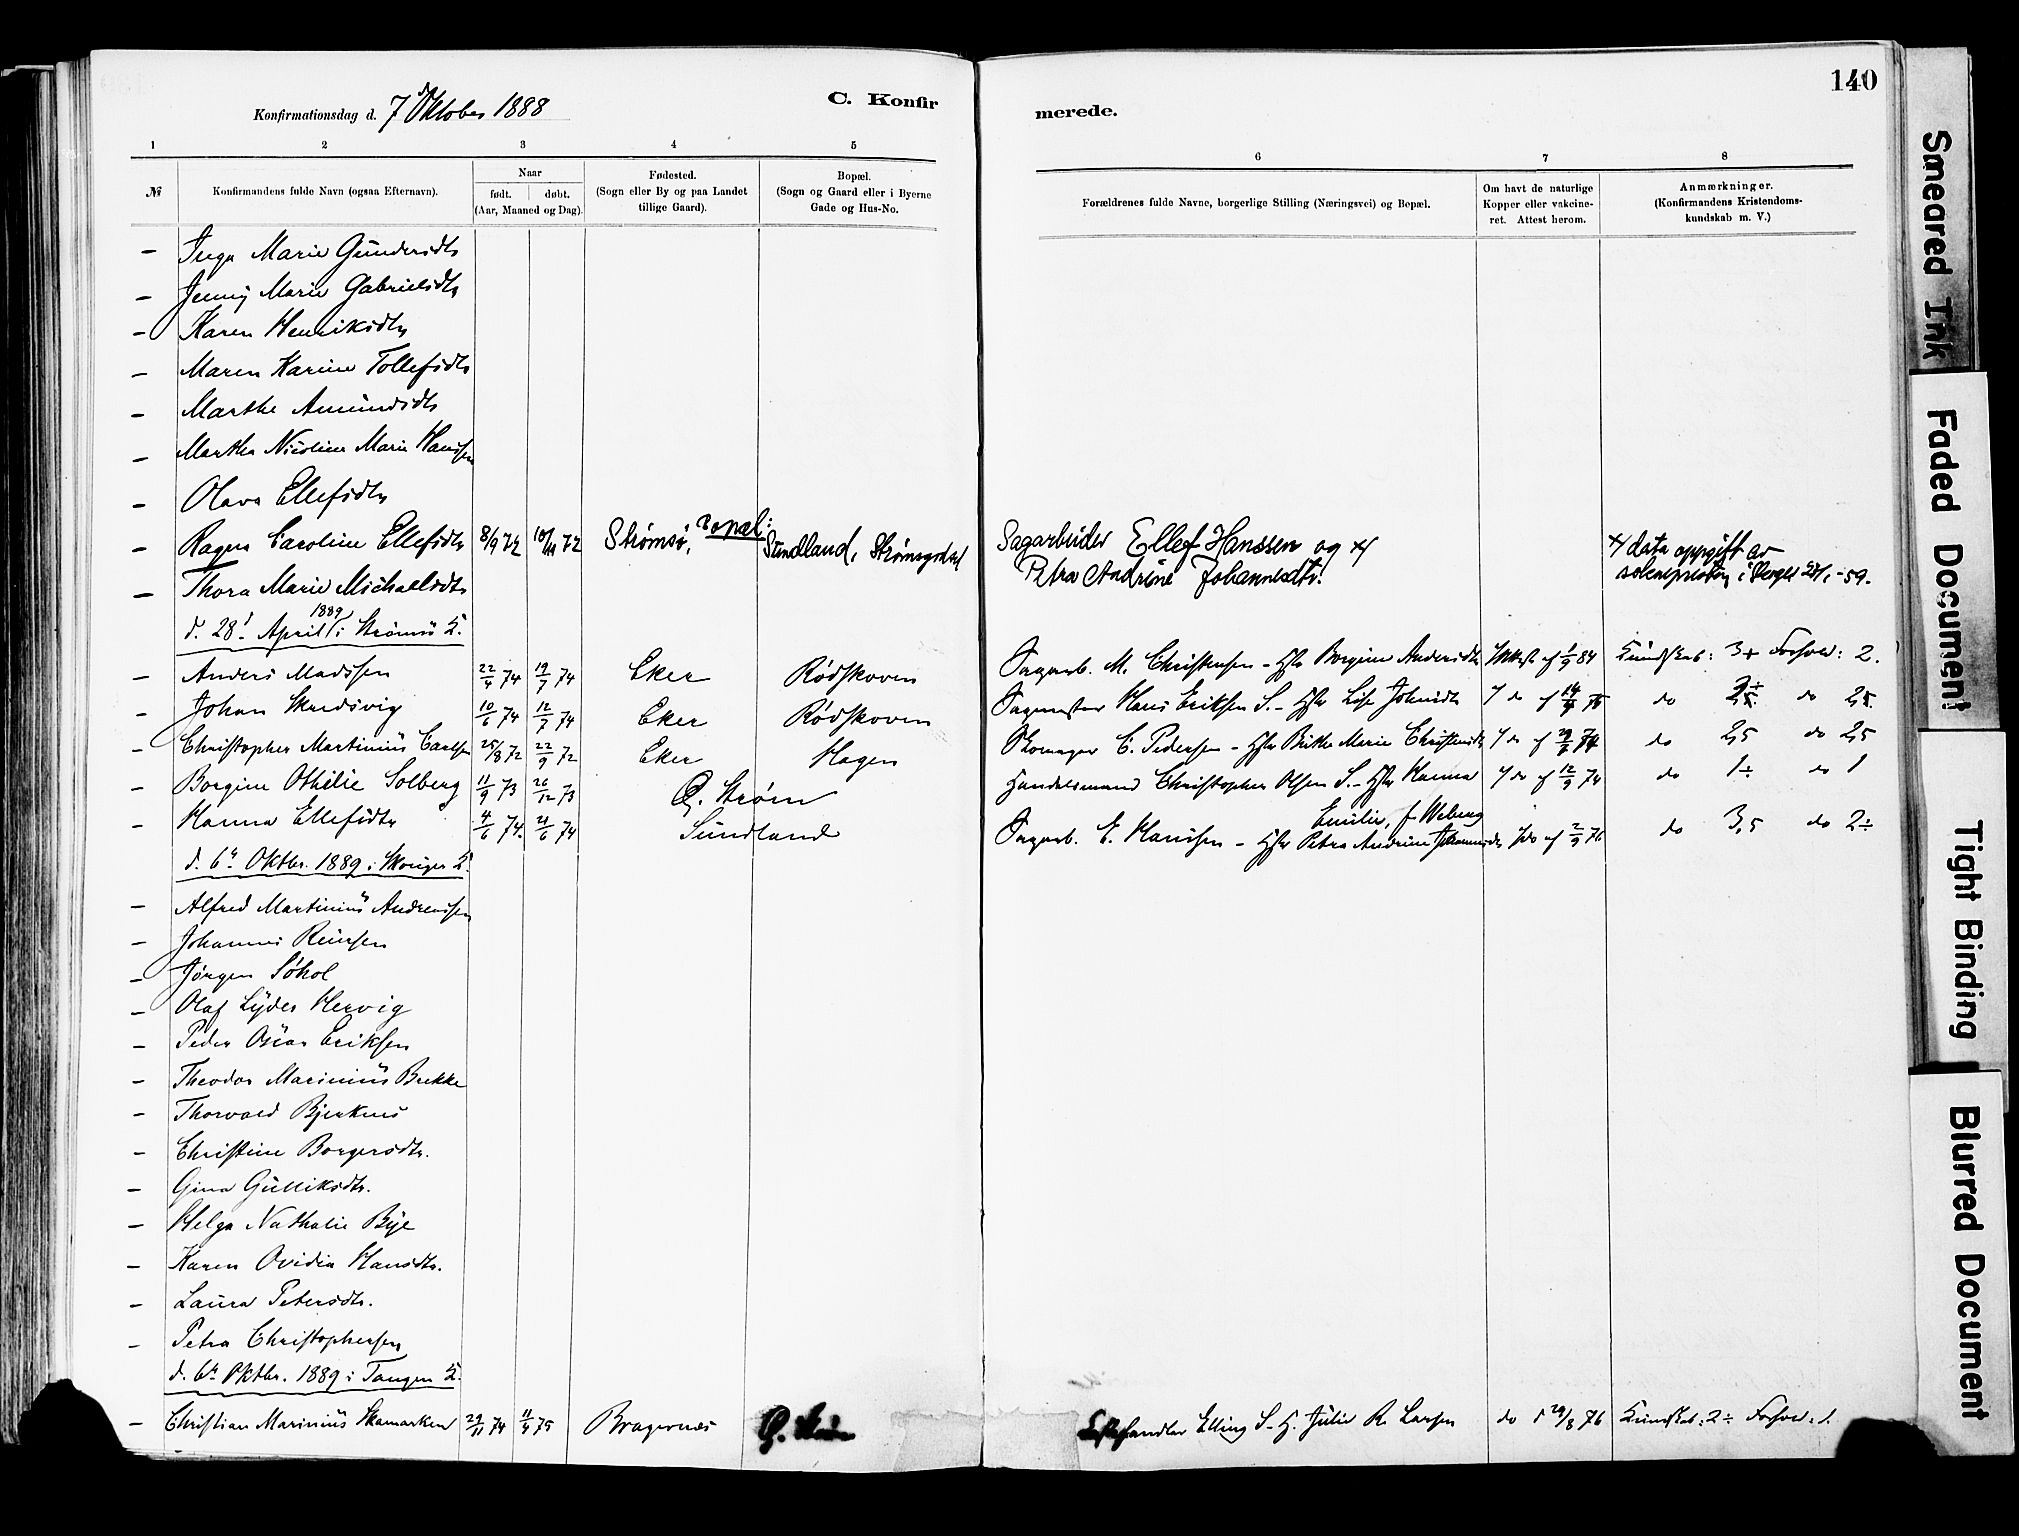 140
Konfirmationsdag d. 7 Oktober 1888
C. Konfir
merede.
1 2 3 4 5 6 7 8
№
Konfirmandens fulde Navn (ogsaa Efternavn).
Naar
født. døbt.
(Aar, Maaned og Dag).
Fødested.
(Sogn eller By og paa Landet
tillige Gaard).
Bopæl.
(Sogn og Gaard eller i Byerne
Gade og Hus-No.
Forældrenes fulde Navne, borgerlige Stilling (Næringsvei) og Bopæl.
Om havt de naturlige
Kopper eller vakcine-
ret. Attest herom.
Anmærkninger.
(Konfirmandens Kristendoms-
kundskab m. V.)
– Inga Marie Gundersdtr
– Jenny Marie Gabrielsdtr
– Karen Henriksdtr
– Maren Karine Tollefsdtr
– Marthe Amundsdtr
– Martha Nicoline Marie Hanssen
– Olava Ellefsdtr
– Ragna Caroline Ellefsdtr 8/9 72 10/11 72 Strømsø, Bopæl: Sundland, Strømsgodset Sagarbeider Ellef Hanssen og x) x) data oppgift av
Petra Andrine Johannesdtr. soknepresten i 59.
– Thora Marie Michaelsdtr
d. 28d April 1889 i Strømsø K.
– Anders Madssen 22/4 74 19/7 74 Eker Rødskoven Sagarb. M. Christensen – Hstr Borgine Andersdtr Attest af 1/9 84 Kundskab: 3+ Forhold: 2.
– Johan Skredsvig 10/6 74 12/7 74 Eker Rødskoven Sagmester Hans Eriksen S. – Hstr do af 75 do do 2,5
– Christopher Martinius Carlsen 25/8 72 22/9 72 Eker Hagen Skomager C. Pedersen – Hstr Birthe Marie do af 74 do 2,5 do 2,5
– Borgine Othilie Solberg 11/9 73 26/12 73 G. Strøm Handelsmand Christopher Olsen S. – Hstr Hanna do af 12/9 74 do 1÷ do 1
Emilie, f. Weberg
– Hanna Ellefsdtr 4/6 74. 21/6 74 Sundland Sagarb. E. Hanssen – Hstr Petra Andrine Johannesdtr do af 2/9 76 do 3,5 do 2÷
d. 6te Oktbr. 1889 i Skouger K.
– Alfred Martinius Andreassen
– Johannes Reiersen
– Jørgen Søhol
– Olaf Lyder Hervig
– Peder Oscar Eriksen
– Theodor Marinius Brekke
– Thorvald Bjerknes
– Christine Borgersdtr.
– Gina Gulliksdtr.
– Helga Nathalie Bye
– Karen Ovidia Hansdtr.
– Laura Petersdtr.
– Petra Christophersen
d. 6te Oktbr. 1889 i Tangen K.
– Christian Marinius Skamarken 29/11 74 11/4 75 Bragernæs G. Strøm Elling S. – H. Julie R. Larsen do d 29/8 76 Kundskab: 2÷ Forhold: 1.
Smeared Ink
Faded Document
Tight Binding
Blurred Document